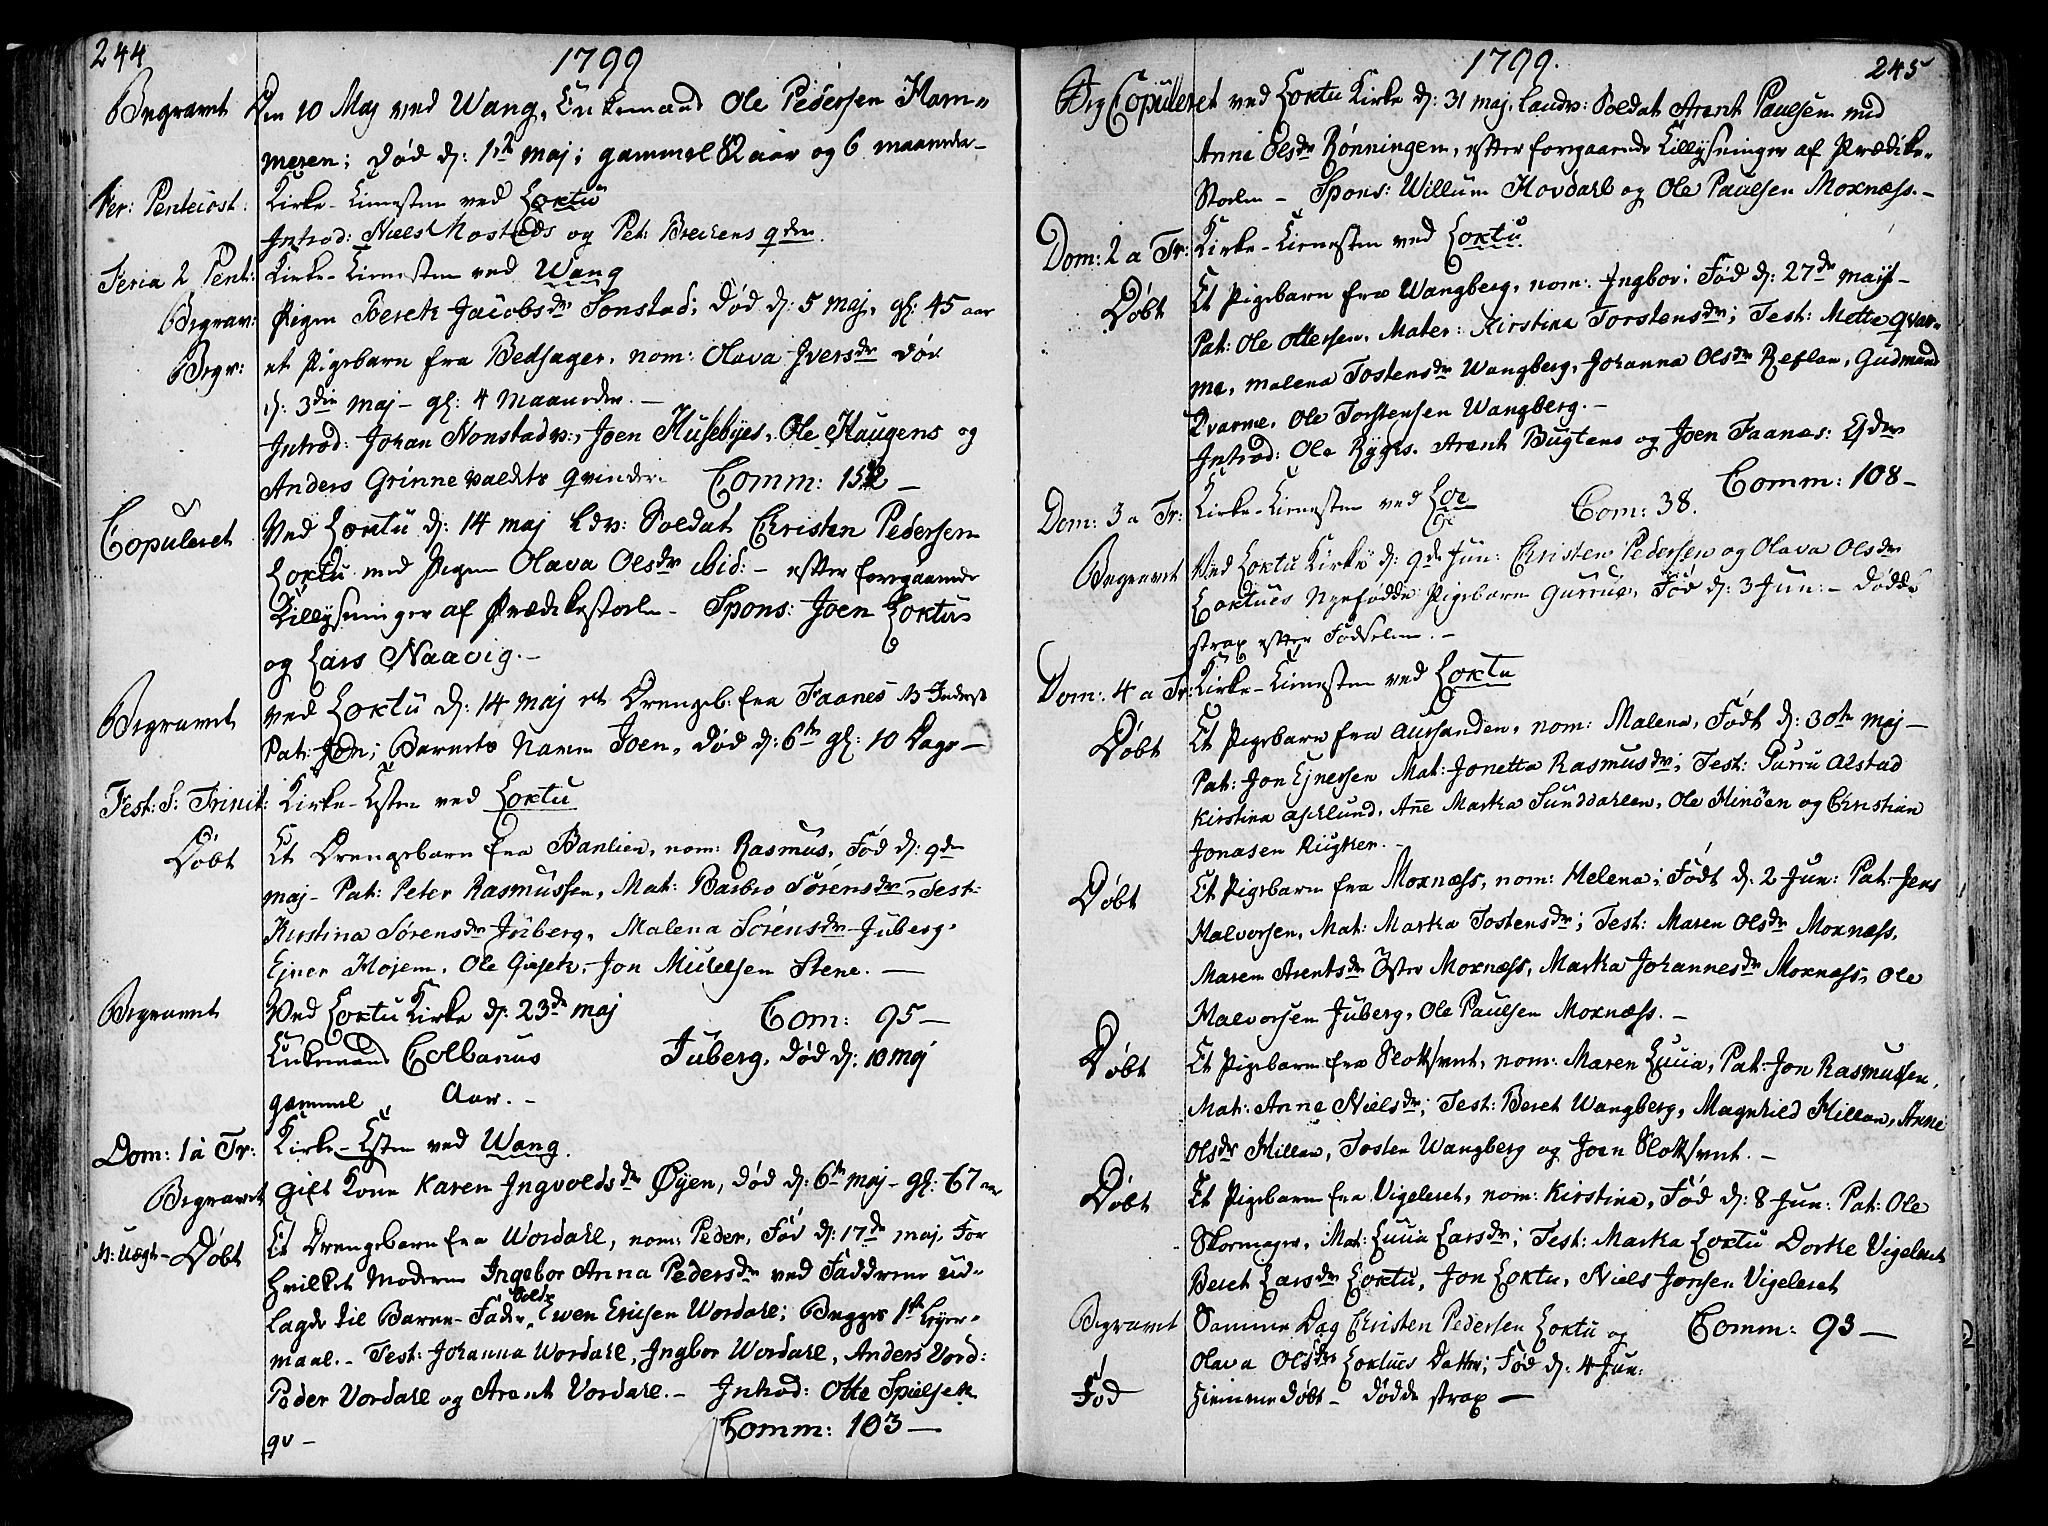 244
1799
Begravet Den 10 Maj ved Wang, Enkemand Ole Pedersen Ham-
meren; død d: 1ste maj; gammel 82 aar og 6 maaneder
Fer: Penteiost: Kirke-Tienesten ved Loktu
Introd: Niels Mosteds og Pet: Breckens qder.
Feria 2 Pent: Kirke-Tienesten ved Wang
Begrav: Pigen Berett Jacobsdr Sonstad; død d: 5 maj, gl: 45 aar
Begr: et Pigebarn fra Bedsager, nom: Olava Iversdr død
d: 3die maj - gl: 4 Maaneder. -
Introd: Johan Nonstadv:, Joen Husebyes, Ole Haugens og
Anders Grinnevaldets qvinder. Comm: 152 -
Copuleret Ved Loktu d: 14 maj Ldv: Soldat Christen Pedersen
Loktu med Pigen Olava Olsdr ibid: - efter foregaaende
Tillysninger af Prædikestolen - Spons: Joen Loktus
og Lars Naavig. -
Begravet ved Loktu d: 14 maj et Drengeb: fra Faanes
Pat: Jon; Barnets Navn Joen, død d: 6te gl: 10 Dage -
Fest: S: Trinit: Kirke-Tiesten ved Loktu
Døbt Et Drengebarn fra Banlien, nom: Rasmus, Fød d: 9de
maj - Pat: Peter Rasmussen, Mat: Barbro Sørensdr, Test:
Kirstina Sørensdr Juberg, Malena Sørensdr Juberg,
Ejner Hojem, Ole Gieset, Jon Mikelsen Stene. -
Begravet Ved Loktu Kirke d: 23de maj Com: 95 -
Enkemand Colbanus Juberg, død d: 10 maj
gammel Aar. -
Dom: 1 a Tr: Kirke-Tiesten ved Wang.
Begravet Gift Kone Karen Ingvoldsdr Øyen, død d: 6te maj - gl: 67 aar
N: Uægt- Døbt Et Drengebarn fra Wordahl, nom: Peder, Fød d: 17de maj, For
hvilket Moderen Ingebor Anna Pedersdr ved Fadderne ud-
lagde til Barne-Fader, Ewen Ericsen Wordahl; Begges 1ste Leyer-
maal. - Test: Johanna Wordahl, Ingbor Wordahl, Anders Vord:
Peder Vordahl og Arent Vordahl. - Introd: Otte Spielset
qv - Comm: 103 -
1799.
245
Beg Copulleret ved Loktu Kirke d: 31 maj, landv: Soldat Arent Paulsen med
Anne Olsdr Rønningen, efter foregaaende Tillysninger af Prædike-
Stolen - Spons: Willum Hovdahl og Ole Paulsen Moxnæss. -
Dom: 2 a Tr: Kirke-Tienesten ved Loktu
Døbt Et Pigebarn fra Wangberg, nom: Ingbor; Fød d: 27de maij -
Pat: Ole Ottersen, Mater: Kirstina Torstensdr; Test: Mette Qvar-
me, Malena Tostensdr Wangberg, Johanna Olsdr Reflan, Gudmund
Qvarme, Ole Torstensen Wangberg. -
Introd: Ole Rygs, Arent Bugtens og Joen Faanes: Qder
Comm: 108 -
Dom: 3 a Tr: Kirke-Tienesten ved Com: 38.
Begravet Ved Loktu Kirke d: 9de Jun: Christen Pedersen og Olava Olsdr
Loktues Nyefødde Pigebarn Gurrue, Fød d: 3 Jun: - Dødde
strax efter Fødselen. -
Dom: 4 a Tr: Kirke-Tienesten ved Loktu
Døbt Et Pigebarn fra Aussanden, nom: Malena, Født d: 30te maj -
Pat: Jon Ejnersen Mat: Jonetta Rasmusdr; Test: Gurru Alstad
Kirstina Asklund, Añe Marka Sunddahlen, Ole Hinöen og Christian
Jonasen Rugker. -
Døbt Et Pigebarn fra Moxnæss, nom: Helena; Født d: 2 Jun: Pat: Jens
Halvorsen, Mat: Marka Tostensdr; Test: Maren Olsdr Moxnæss,
Maren Arentsdr Öster Moxnæss, Marka Johannesdr Moxnæss, Ole
Halvorsen Juberg, Ole Paulsen Moxnæss. -
Døbt Et Pigebarn fra Slottsvet, nom: Maren Lucia, Pat: Jon Rasmussen,
Mat: Anne Nielsdr; Test: Beret Wangberg, Magnhild Hillan, Anne
Olsdr Hillan, Tosten Wangberg og Joen Slottsvet. -
Døbt Et Pigebarn fra Vigeleret, nom: Kirstina, Fød d: 8 Jun: Pat: Ole
Skormager, Mat: Lucia Larsdr; Test: Marka Loktu Dorke Vigeleret
Beret Larsdr Loktu, Jon Loktu, Niels Jonsen Vigeleret
Begravet Samme Dag Christen Pedersen Loktu og Comm: 93 -
Olava Olsdr Loktues Datter; Fød d: 4 Jun:
Fød Hiemme Døbt - Dødde strax -